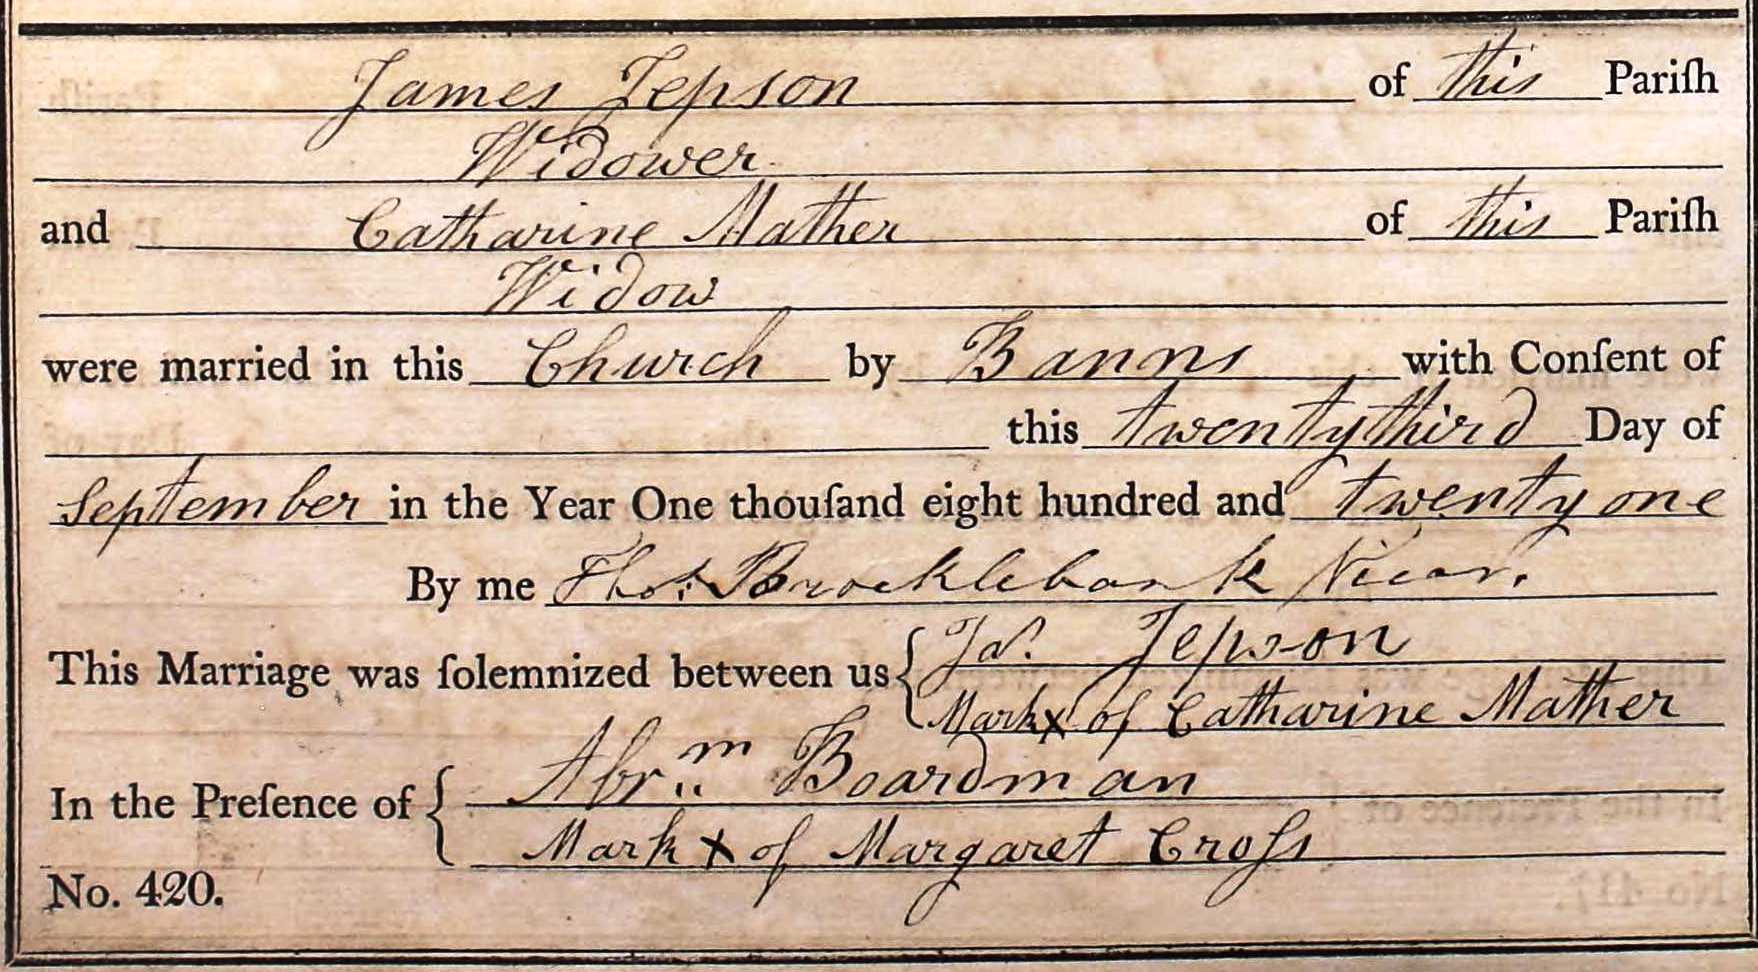 James Jepson of this Pariſh
Widower
and Catharine Mather of this Pariſh
Widow
were married in this Church by Banns with Conſent of
this twenty third Day of
September in the Year One thouſand eight hundred and twenty one
By me Thos. Brocklebank Vicar.
This Marriage was ſolemnized between us { Jas. Jepson
Mark x of Catharine Mather
In the Preſence of { Abrm Boardman
Mark x of Margaret Croſs
No. 420.